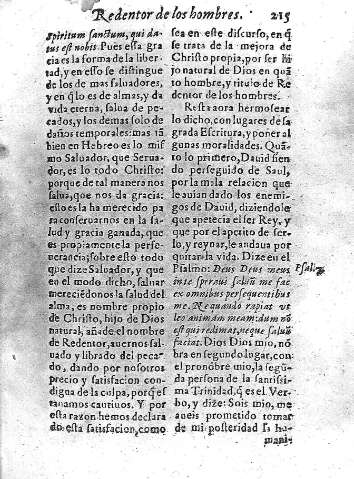 Redentor de los hombres. 215
spiritum sanctum, qui da-
tus est nobis. Pues esta gra
cia es la forma de la liber-
tad, y en esso se distingue
de los de mas saluadores,
y en q̃ lo es de almas, y da
vida eterna, salua de pe-
cados, y los demas solo de
daños temporales: mas tã
bien en Hebreo es lo mis
mo Saluador, que Serua-
dor, es lo todo Christo:
porque de tal manera nos
salua, que nos da gracia:
esto es la ha merecido pa
ra conseruarnos en la sa-
lud y gracia ganada, que
es propiamente la perse-
uerancia; sobre esto todo
que dize Saluador, y que
en el modo dicho, saluar
mereciẽdonos la salud del
alma, es nombre propio
de Christo, hijo de Dios
natural, añade el nombre
de Redentor, auernos sal-
uado y librado del peca-
do, dando por nosotros
precio y satisfacion con-
digna de la culpa, porq̃ es
tauamos cautiuos. Y por
esta razon hemos declara
do esta satisfacion, como
sea en este discurso, en q̃
se trata de la mejora de
Christo propia, por ser hi
jo natural de Dios en quã
to hombre, y titulo de Re
dentor de los hombres.
Resta aora hermosear
lo dicho, con lugares de sa
grada Escritura, y poner al
gunas moralidades. Quã-
to lo primero, Dauid siẽn
do perseguido de Saul,
por la mala relacion que
le auian dado los enemi-
gos de Dauid, diziendole
que apetecia el ser Rey, y
que por el apetito de ser-
lo, y reynar, le andaua por
quitar la vida. Dize en el
Psalmo: Deus Deus meus
in te speraui saluũ me fac
ex omnibus persequentibus
me. Ne quando rapiat vt
leo animam meam: dum nõ
est qui redimat, neque saluũ
faciat. Dios Dios mio, nõ
bra en segundo lugar, con
el pronõbre mio, la segũ-
da persona de la santissi
ma Trinidad, q̃ es el Ver-
bo, y dize: Sois mio, me
aueis prometido tomar
de mi posteridad la hu
mani-